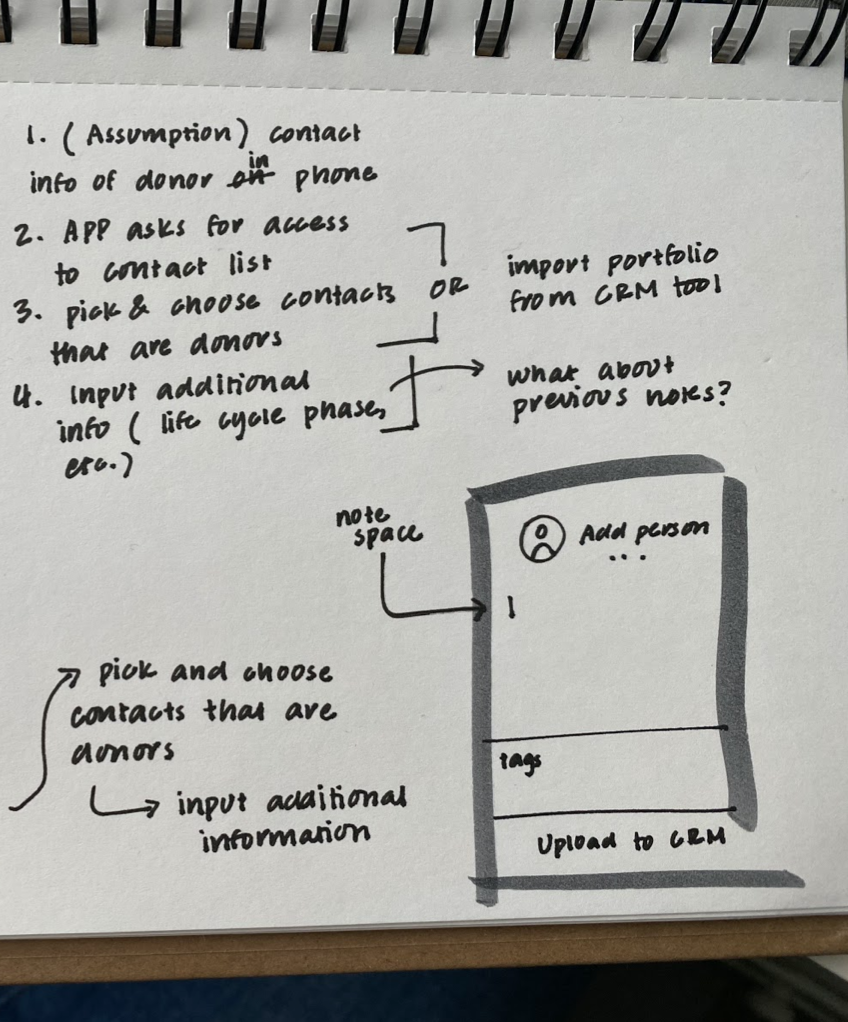 1. (Assumption) contact
info of donor in phone
2. APP asks for access
to contact list
3. pick & choose contacts
that are donors
4. Input additional
info ( life cycle phase,
etc.)
OR
import portfolio
from CRM tool
what about
previous notes?
note
space
Add person
...
tags
Upload to CRM
pick and choose
contacts that are
donors
input additional
information